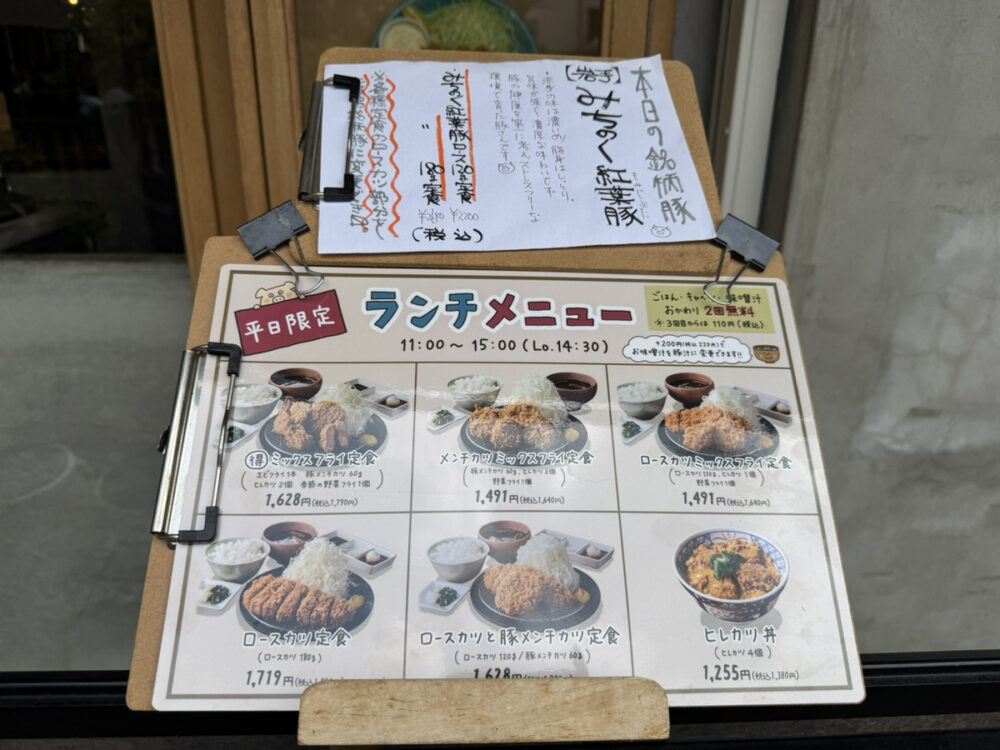 本日の銘柄豚
【岩手】みちのく紅葉豚
・赤身の味は濃いめ、脂身はしっとり。
旨味が強く、濃厚な味わいです。
豚の健康を第一に考え、ストレスフリーな
環境で育った豚さんです
・みちのく紅葉豚ロース
(税込)
平日限定
ランチメニュー
11:00 ～ 15:00 (Lo.14:30)
ごはん・キャベツ・味噌汁
おかわり 2回無料
※3回目からは 110円(税込)
+200円(税込220円)で
お味噌汁を豚汁に変更できます!!
得 ミックスフライ定食
エビフライ1本 豚メンチカツ 60g
ヒレカツ 2個 季節の野菜フライ1個
1,628円(税込1,790円)
メンチカツミックスフライ定食
野菜フライ1個
1,491円(税込1,640円)
ロースカツミックスフライ定食
ロースカツ 120g、ヒレカツ 1個
野菜フライ1個
1,491円(税込1,640円)
ロースカツ定食
(ロースカツ 180g)
1,719円(税込
ロースカツと豚メンチカツ定食
(ロースカツ 120g / 豚メンチカツ 60g)
1,628円
ヒレカツ丼
(ヒレカツ 4個)
1,255円(税込1,380円)